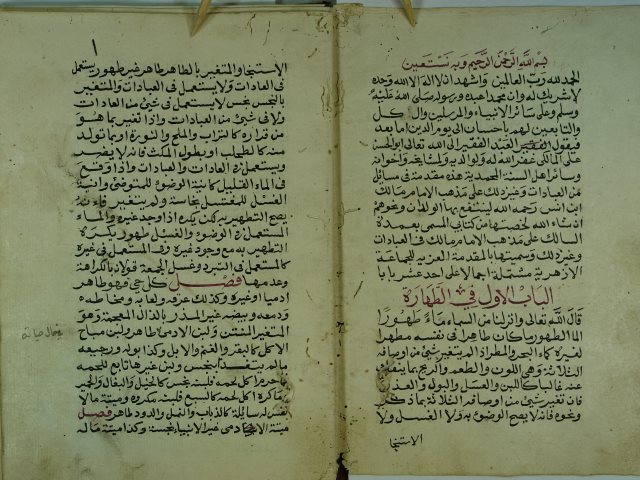 بسم الله الرحمن الرحيم وبه نستعين
الحمد لله رب العالمين واشهد ان لا اله الا الله وحده
لا شريك له وان محمدا عبده ورسوله صلى الله عليه
وسلم وعلى سائر الانبياء والمرسلين وال كل
والتابعين لهم باحسان الى يوم الدين اما بعد
فيقول الفقير العبد الفقير الى الله تعالى ابو الحسن
على المالكى غفر الله له ولوالديه ولمشايخه واخوانه
وسائر اهل السنة المحمدية هذه مقدمة فى مسائل
من العبادات وغير ذلك على مذهب الامام مالك
ابن انس رحمه الله لينتفع بها الولدان ونحوهم
ان شاء الله لخصتها من كتابى المسمى بعمدة
السالك على مذهب الامام مالك فى العبادات
وغير ذلك وسميتها بالمقدمة العزيه للجماعة
الازهرية مشتملة اجمالا على احد عشر بابا
الباب الاول فى الطهارة
قال الله تعالى وانزلنا من السماء ماء طهورا
الما الطهور ما كان طاهرا فى نفسه مطهرا
لغيره كماء البحر والمطر اذا لم يتغير شئ من اوصافه
الثلاثة وهى اللون والطعم والريح بما ينفك
عنه غالبا كاللبن والعسل والبول والعذرة
فان تغير شئ من اوصافه الثلاثة بما ذكر
ونحوه فانه لا يصح الوضوء به ولا الغسل ولا
الاستنجا
ا
الاستنجا والمتغير بالطاهر طاهر غير طهور يستعمل
فى العادات ولا يستعمل فى العبادات والمتغير
بالنجس نجس لا يستعمل فى شئ من العادات
ولا فى شئ من العبادات واذا تغير بما هو
من قراره كالتراب والملح والنورة او بما تولد
منه كالطحلب او بطول المكث فانه لا يضر
ويستعمل فى العادات والعبادات واذا وقع
فى الماء القليل كانية الوضوء للمتوضى وانية
الغسل للمغتسل نجاسة ولم يتغير فانه
يصح التطهير به لكن يكره اذا وجد غيره والماء
المستعمل فى الوضوء والغسل طهور يكره
التطهير به مع وجود غيره وفى المستعمل فى غيره
كالمستعمل فى التبرد وغسل الجمعة قولان بالكراهة
وعدمها فصل كل حى فهو طاهر
ادميا او غيره وكذلك عرقه ولعابه ومخاطه
ودمعه وبيضه غير المذر بالذال المعجمة وهو
المتغير المنتن ولبن الادمى طاهر ولبن مباح
الاكل كالبقر والغنم والابل وكذا بوله ورجيعه
ما لم يتغذ بنجس ولبن غيرها تابع للحمه
فاحرم اكل لحمه فلبنه نجس كالخيل والبغال والحمير
وما كره اكل لحمه كالسبع فلبنه مكروه وميتة مالا
نفس له سائلة كالذباب والنمل والدود طاهر فصل
ميتة الادمى غير الانبياء نجسة وكذا ميتة ماله